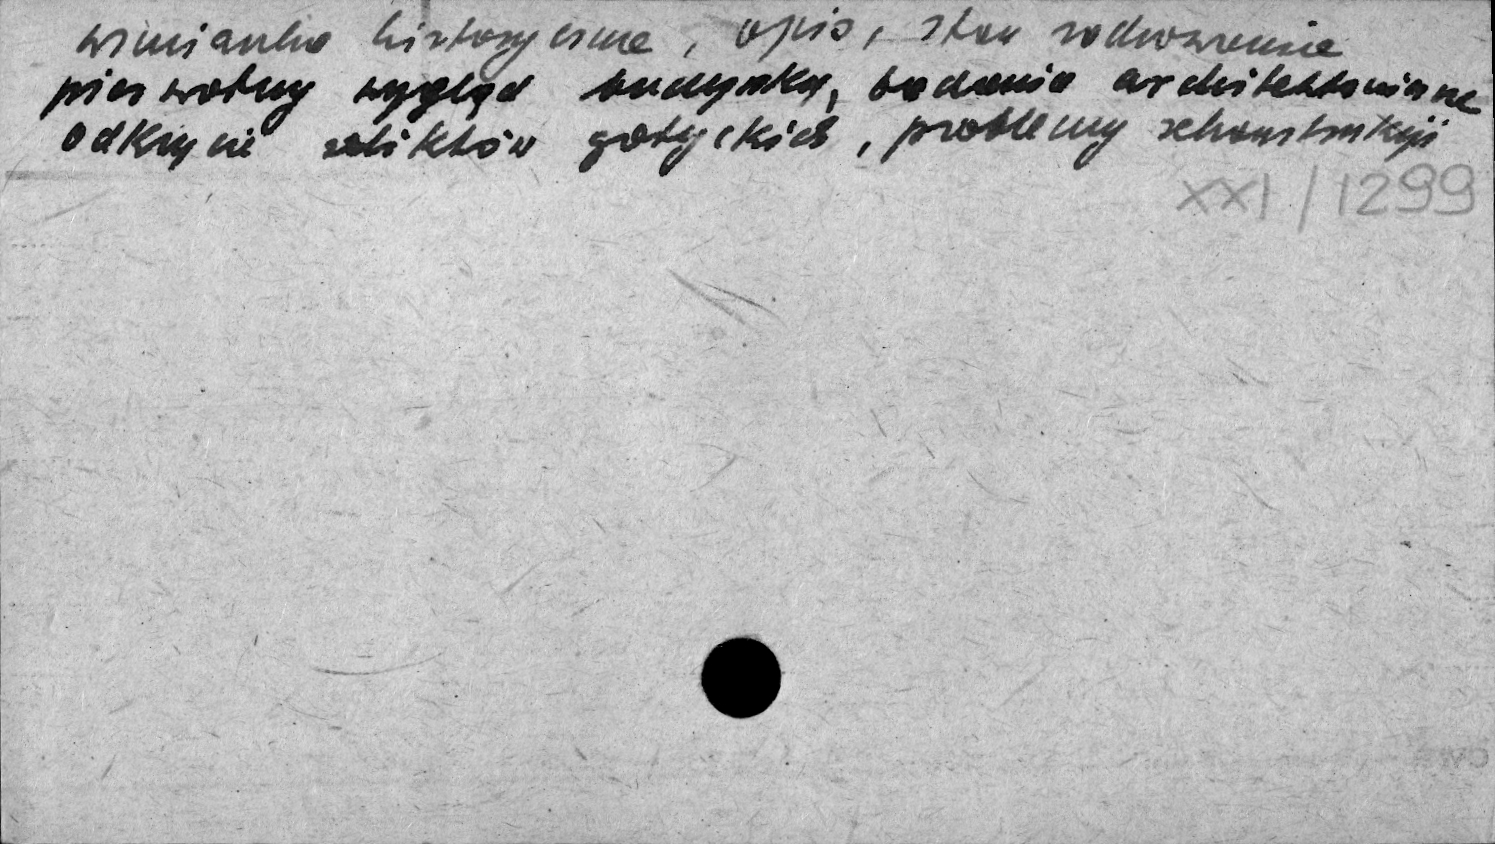 wzmianka historyczna, opis, stan zachowania
pierwotny wygląd budynku, badania architektoniczne
odkrycie reliktów gotyckich, problemy rekonstrukcji
XXI/1299